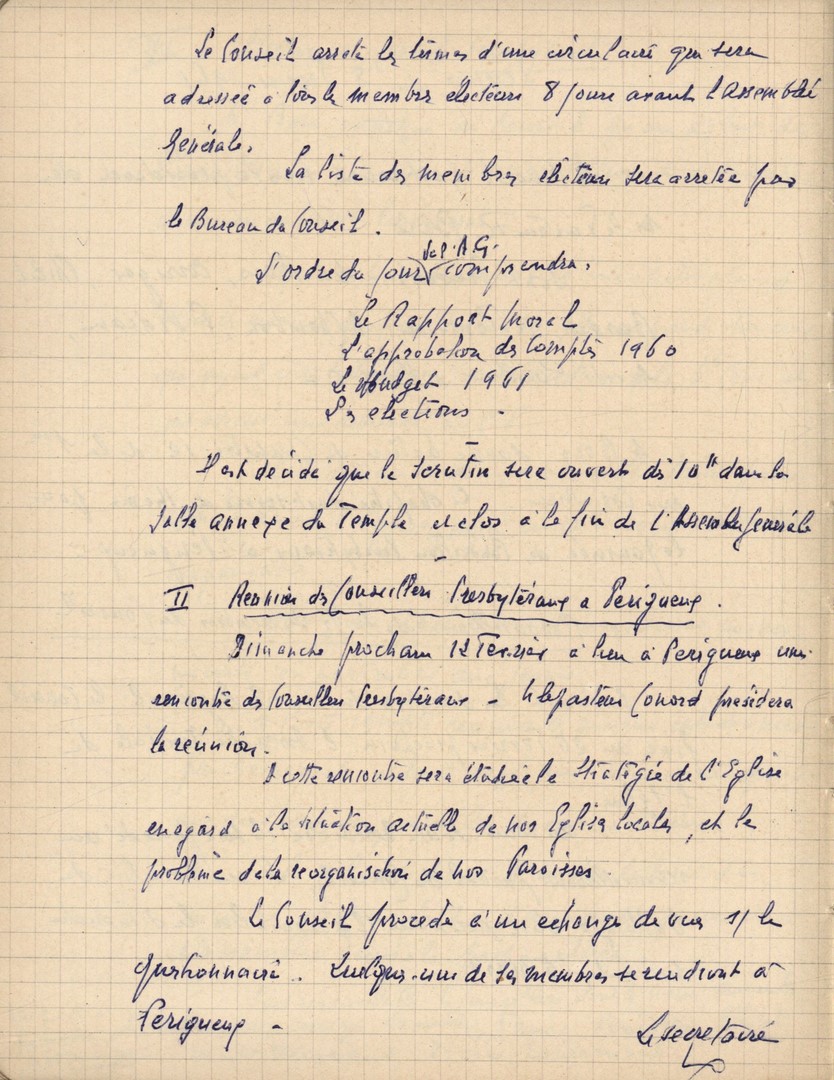 Le Conseil arrête les termes d'une circulaire qui sera
adressée à tous les membres électeurs 8 jours avant l'Assemblée
Générale.
La liste des membres électeurs sera arretée par
le Bureau du Conseil.
de l'A.G.
L'ordre du jour comprendra.
Le Rapport Moral
L'approbation des Comptes 1960
Le budget 1961
Les elections -
Il est décidé que le Scrutin sera ouvert dès 10h dans la
Salle annexe du Temple et clos à la fin de l'Assemblée générale
II Reunion des Conseillers Presbytéraux a Perigueux.
Dimanche prochain 12 Fevrier à lieu à Perigueux une
rencontre des Conseillers Presbytéraux - M le pasteur Conord présidera
la réunion.
A cette rencontre sera étudiée la Stratégie de l'Eglise
en egard à la situation actuelle de nos Eglises locales, et le
problème de la reorganisation de nos Paroisses.
Le Conseil procede à un echange de vues s/ le
questionnaire. Quelques-uns de ses membres se rendront à
Perigueux -
Le secretaire